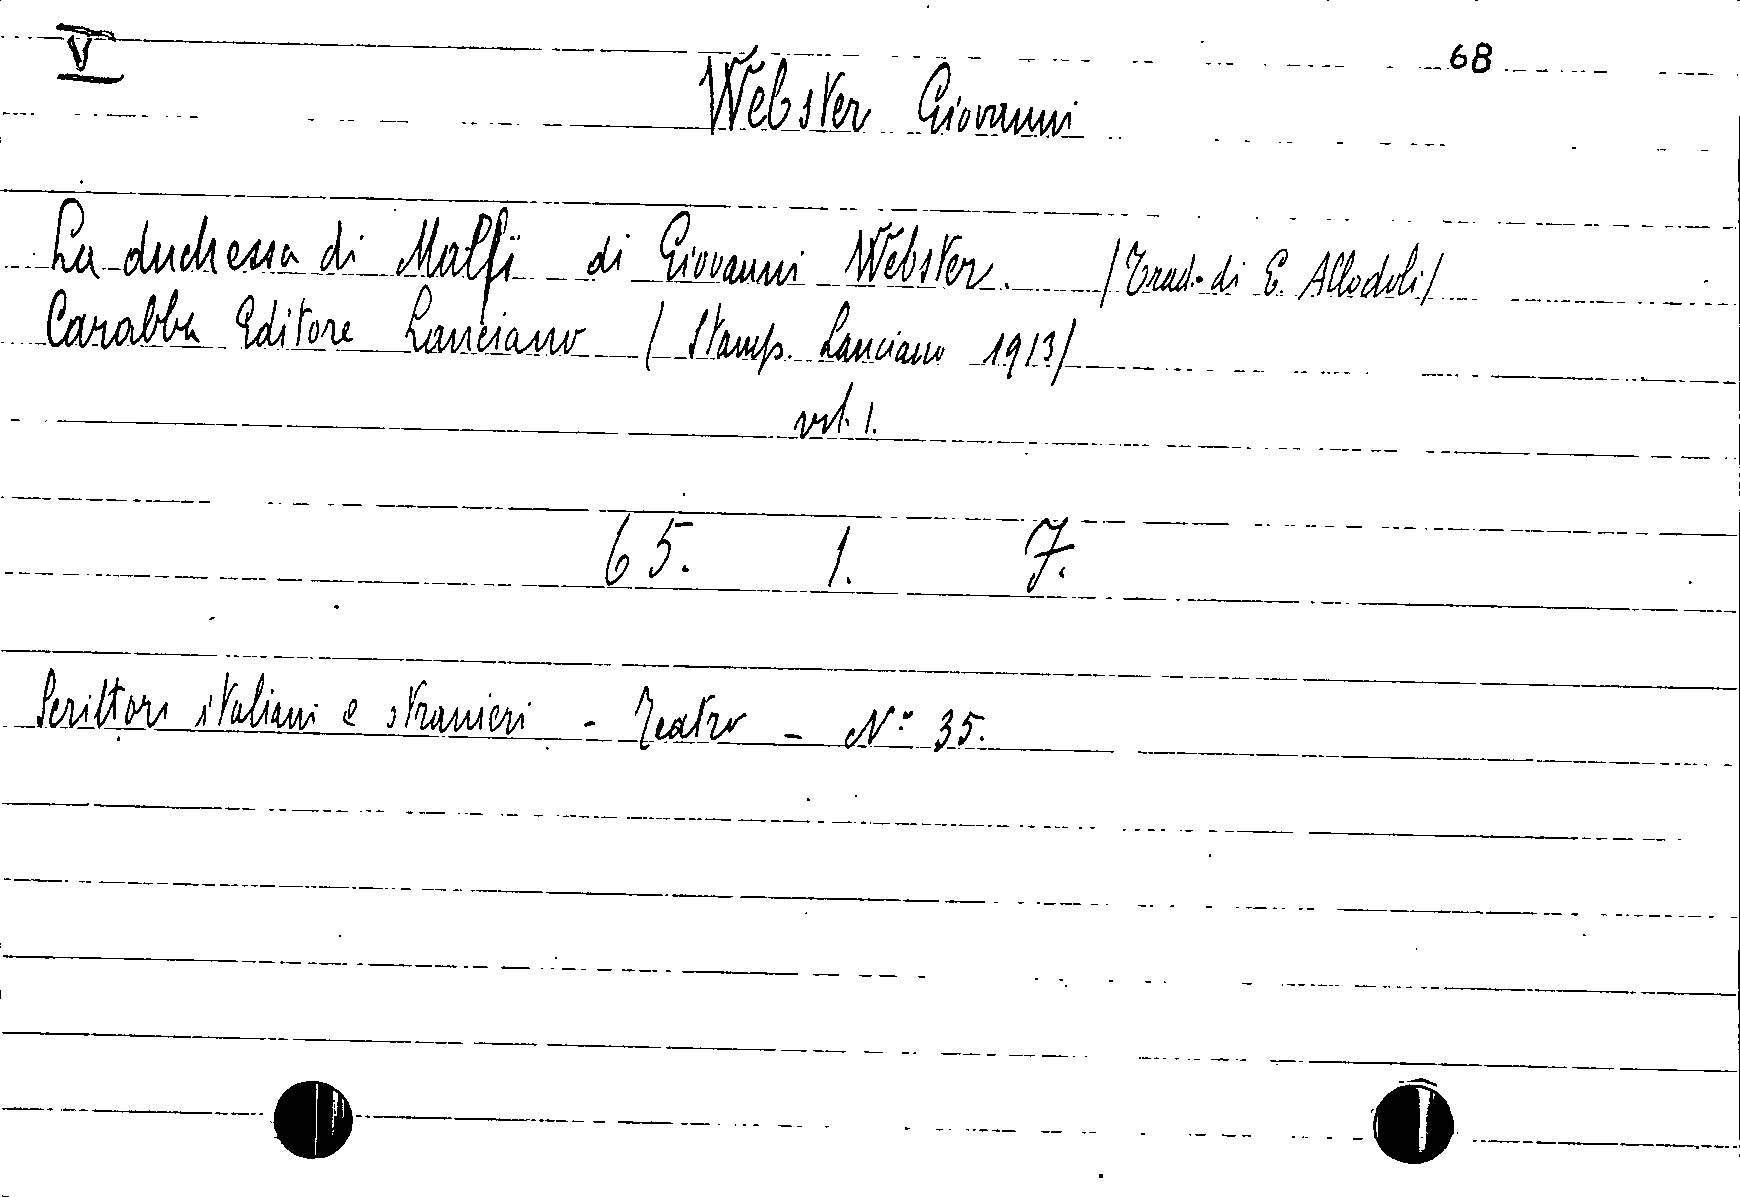 V
68
Webster Giovanni
La duchessa di Malfi di Giovanni Webster. /Trad. di E. Allodoli/
Carabba Editore Lanciano / Stamp. Lanciano 1913/
vol. 1.
65. 1. 7.
Scrittori italiani e stranieri - Teatro - N° 35.